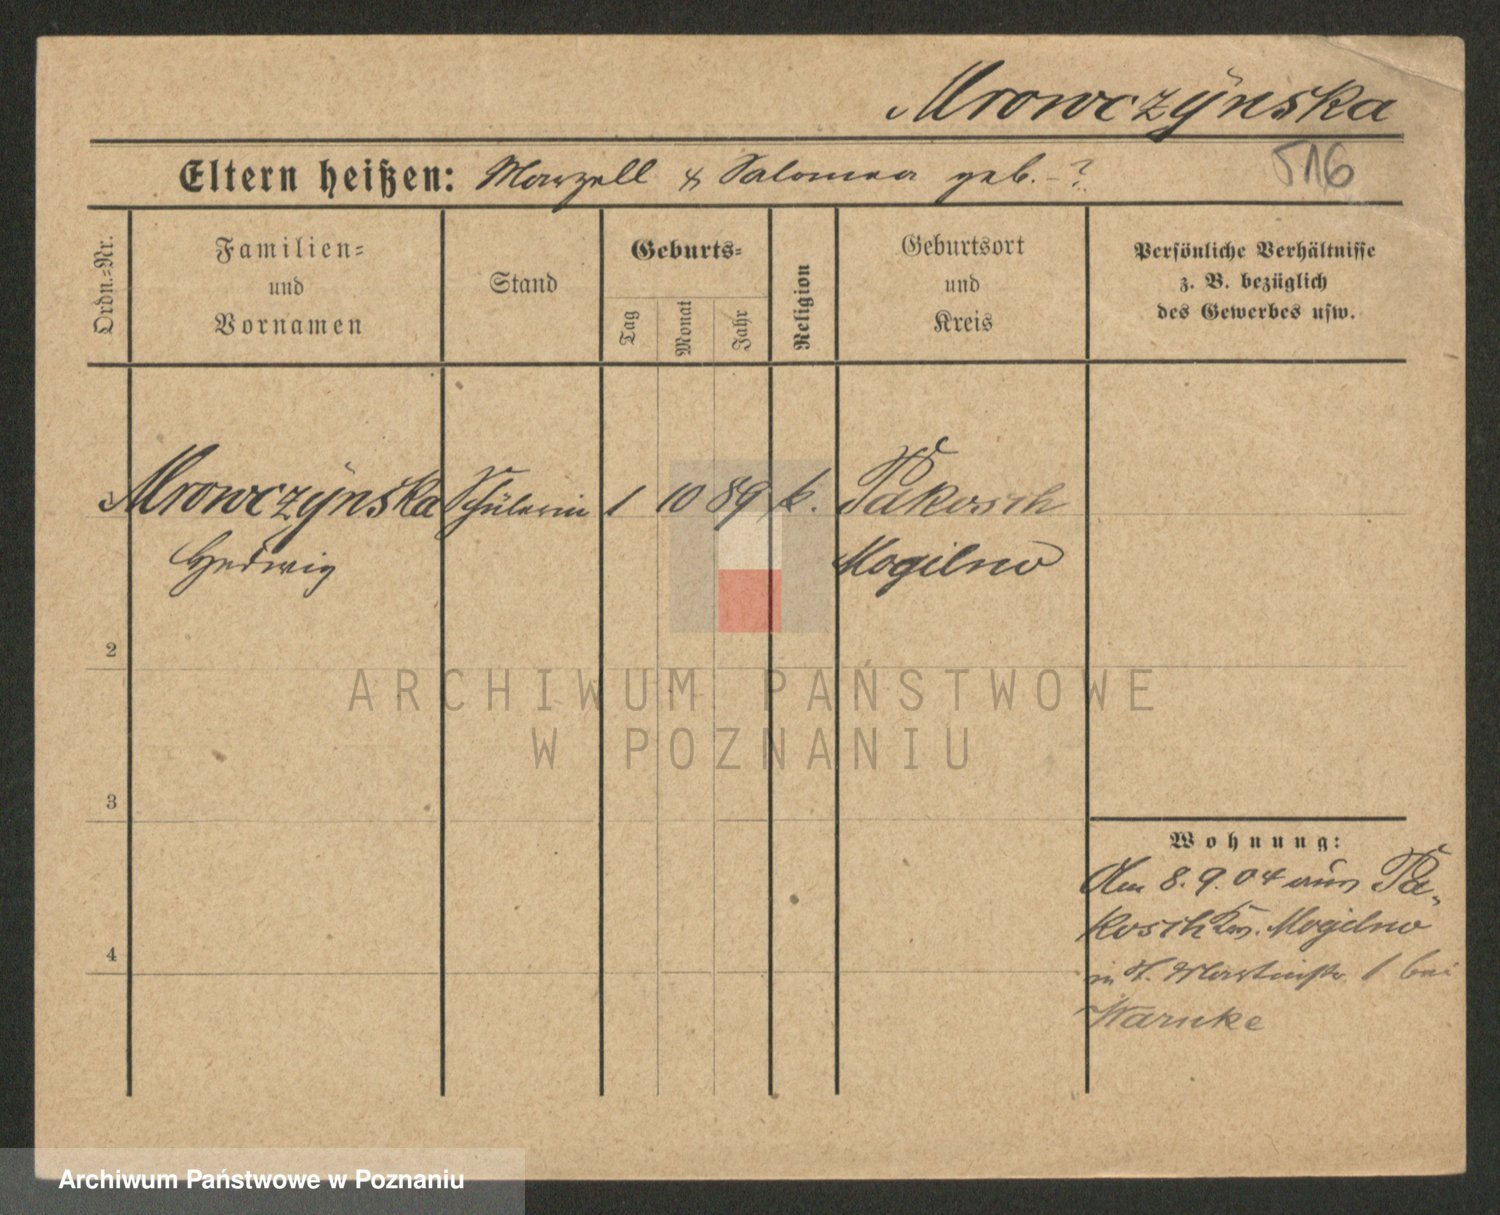 Mrowczÿnska
516
Eltern heißen: Marzell & Salomea geb. - ?
Ordn.=Nr.
Familien=
und
Vornamen
Stand
Geburts=
Tag
Monat
Jahr
Religion
Geburtsort
und
Kreis
Persönliche Verhältnisse
z. B. bezüglich
des Gewerbes usw.
Mrowczÿnska Schülerin 1 10 89 k. Pakosch
Hedwig Mogilno
2
3
4
Wohnung:
Am 8. 9. 04 aus Pa-
kosch Krs. Mogilno
in St. Martinstr. 1 bei
Warnke
ARCHIWUM PAŃSTWOWE
W POZNANIU
Archiwum Państwowe w Poznaniu